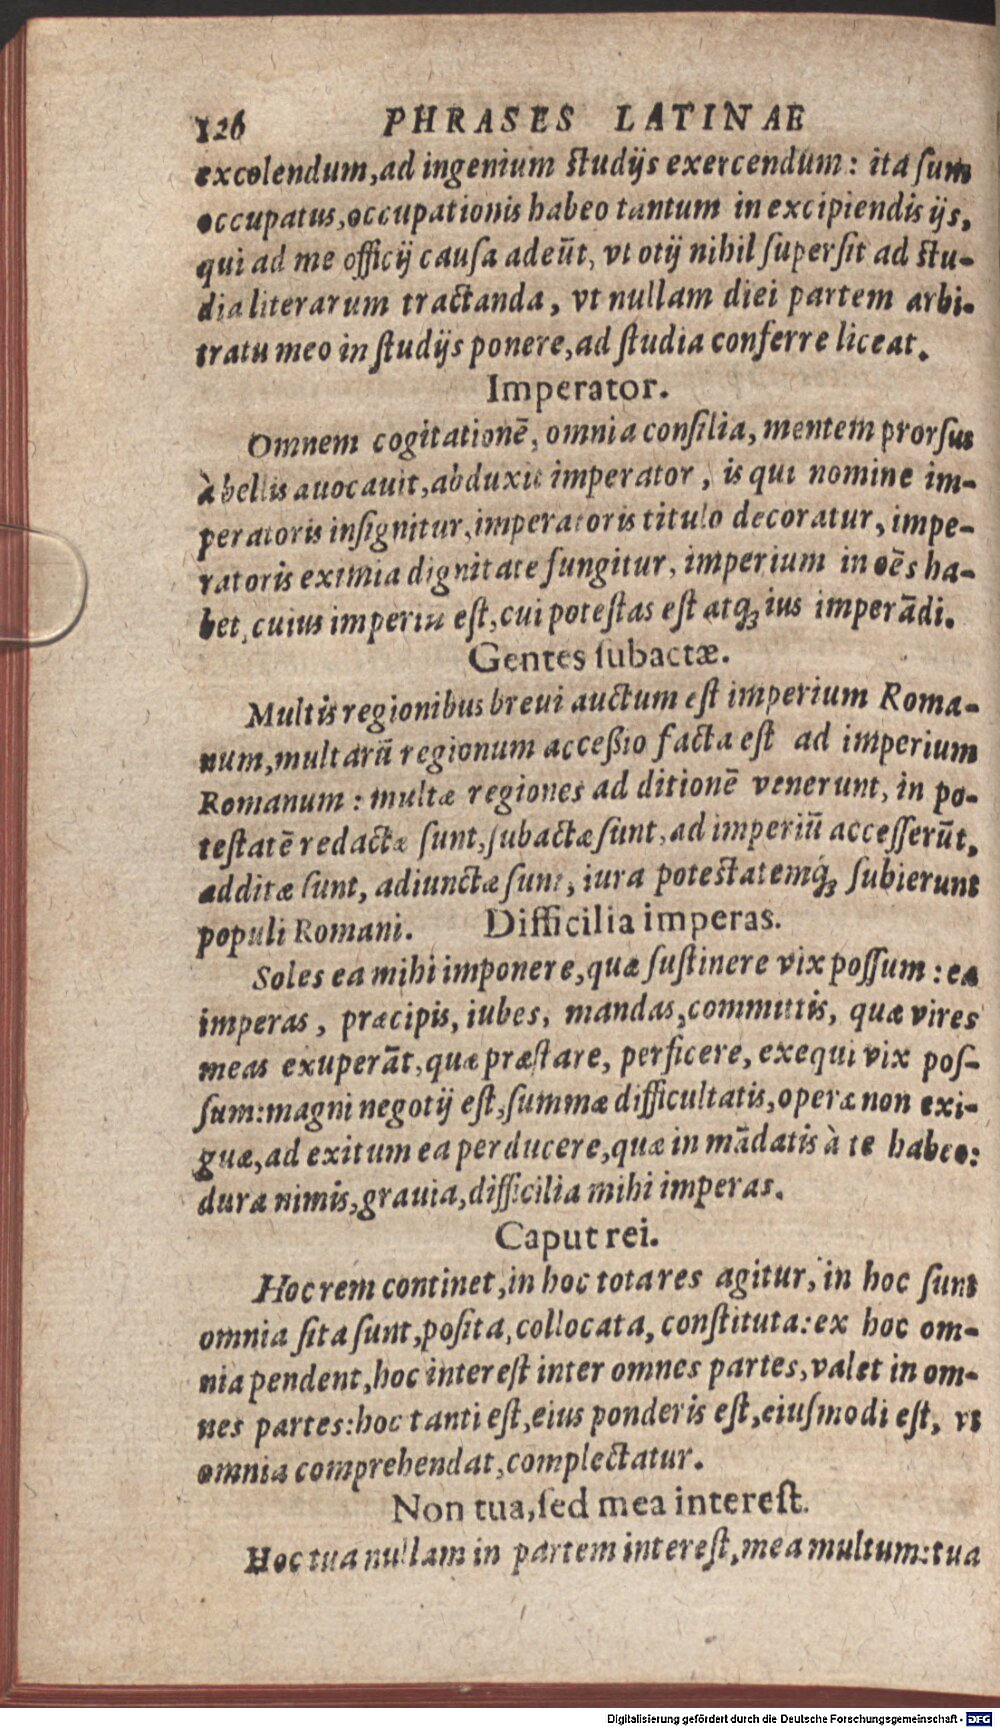 126 PHRASES LATINAE
excolendum, ad ingenium ſtudijs exercendum: ita ſum
occupatus, occupationis habeo tantum in excipiendis ijs,
qui ad me officij cauſa adeūt, vt otij nihil ſuperſit ad ſtu-
dia literarum tractanda, vt nullam diei partem arbi-
tratu meo in ſtudijs ponere, ad ſtudia conferre liceat.
Imperator.
Omnem cogitationē, omnia conſilia, mentem prorſus
à bellis auocauit, abduxit imperator, is qui nomine im-
peratoris inſignitur, imperatoris titulo decoratur, impe-
ratoris eximia dignitate fungitur, imperium in oēs ha-
bet, cuius imperiū eſt, cui poteſtas eſt atqꝫ ius imperādi.
Gentes ſubactæ.
Multis regionibus breui auctum eſt imperium Roma-
num, multarū regionum acceßio facta eſt ad imperium
Romanum: multæ regiones ad ditionē venerunt, in po-
teſtatē redactæ ſunt, ſubactæ ſunt, ad imperiū acceſſerūt,
additæ ſunt, adiunctæ ſunt, iura poteſtatemq́ꝫ ſubierunt
populi Romani. Difficilia imperas.
Soles ea mihi imponere, quæ ſuſtinere vix poſſum: ea
imperas, præcipis, iubes, mandas, committis, quæ vires
meas exuperāt, quæ præſtare, perficere, exequi vix poſ-
ſum: magni negotij eſt, ſummæ difficultatis, operæ non exi-
guæ, ad exitum ea perducere, quæ in mādatis à te habeo:
dura nimis, grauia, difficilia mihi imperas.
Caput rei.
Hoc rem continet, in hoc tota res agitur, in hoc ſunt
omnia ſita ſunt, poſita, collocata, conſtituta: ex hoc om-
nia pendent, hoc intereſt inter omnes partes, valet in om-
nes partes: hoc tanti eſt, eius ponderis eſt, eiuſmodi eſt, vt
omnia comprehendat, complectatur.
Non tua, ſed mea intereſt.
Hoc tua nullam in partem intereſt, mea multum: tua
Digitalisierung gefördert durch die Deutsche Forschungsgemeinschaft - DFG